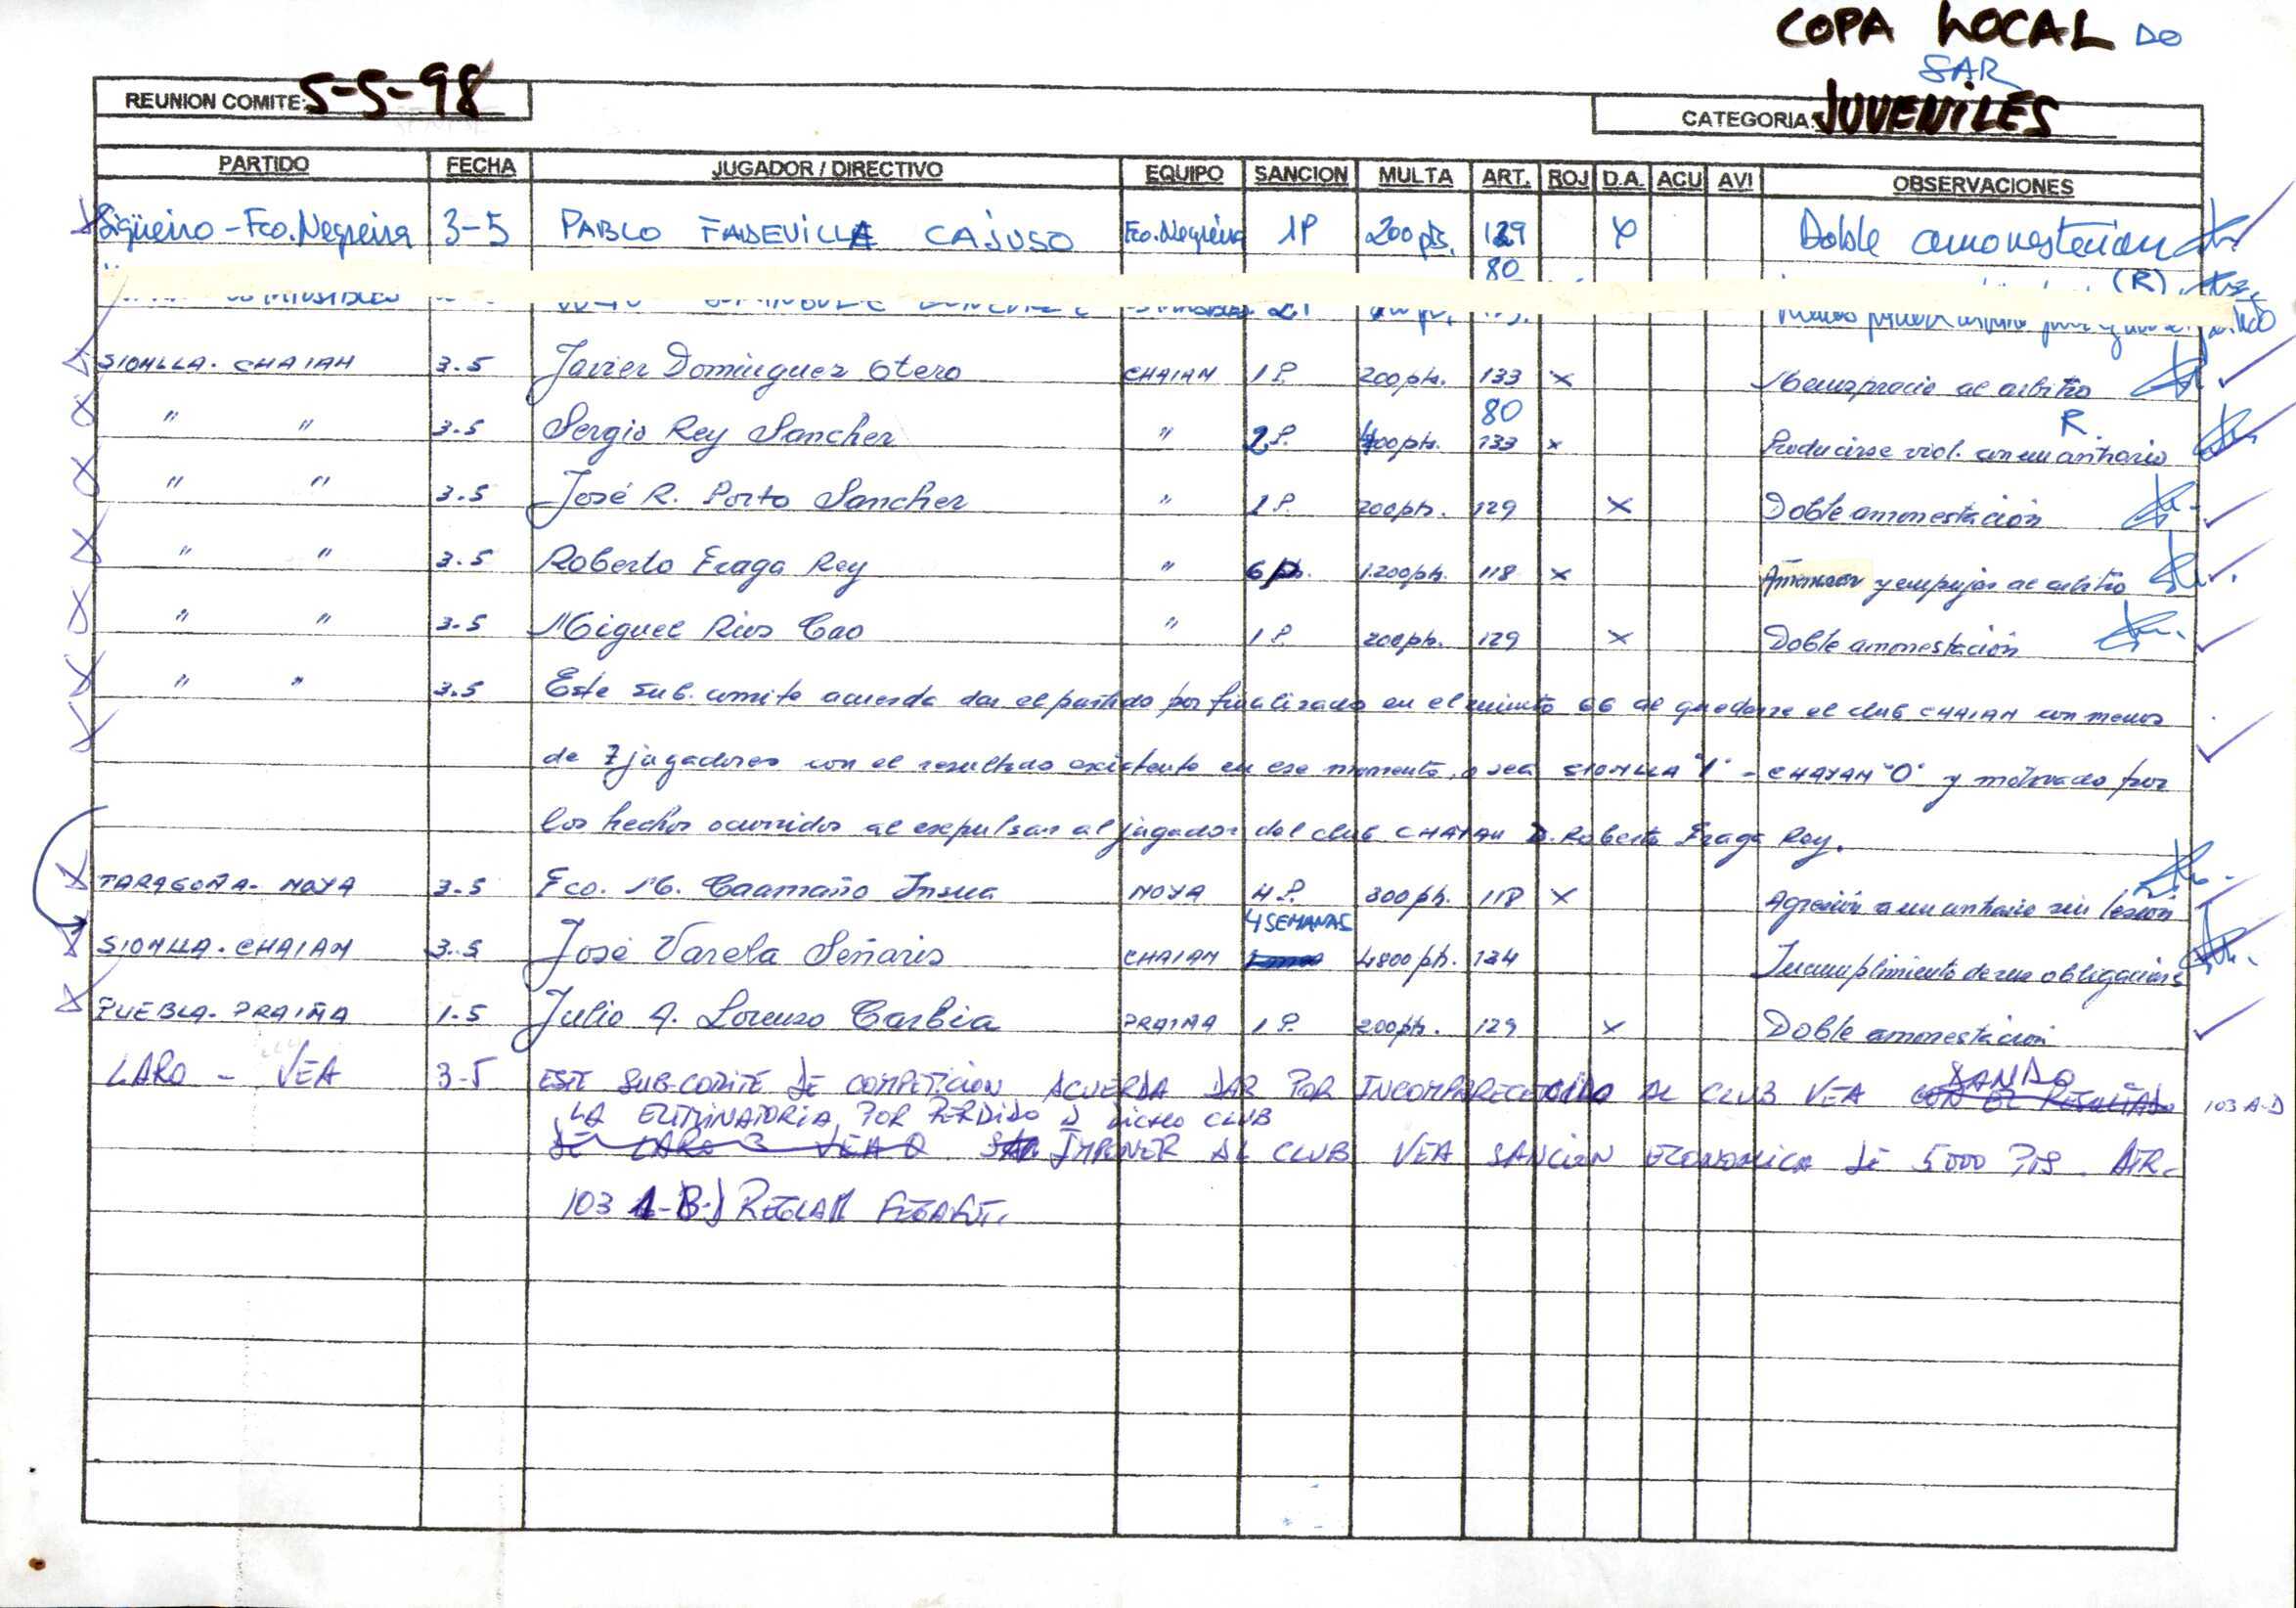 COPA LOCAL DO
SAR
REUNION COMITE: 5-5-98
CATEGORIA: JUVENILES
PARTIDO FECHA JUGADOR / DIRECTIVO EQUIPO SANCION MULTA ART. ROJ D.A. ACU AVI OBSERVACIONES
Sigüeiro - Fco. Negreira 3-5 PABLO CAJUSO Fco. Negreira 1P 200 pts. 129 X Doble amonestacion
80 (R)
SIONLLA - CHAIAN 3.5 Javier Dominguez Otero CHAIAN 1 P. 200 pts. 133 X Menosprecio al arbitro
80 R
" " 3.5 Sergio Rey Sanchez " 2 P. 400 pts. 133 x Producirse viol. con un contrario
" " 3.5 José R. Porto Sanchez " 1 P. 200 pts. 129 X Doble amonestación
" " 3.5 Roberto Fraga Rey " 6 P. 1.200 pts. 118 X y empujar al arbitro
" " 3.5 Miguel Rios Cao " 1 P. 200 pts. 129 X Doble amonestación
" " 3.5 Este sub. comite acuerda dar el partido por finalizado en el minuto 66 al quedarse el club CHAIAN con menos
de 7 jugadores con el resultado existente en ese momento, o sea SIONLLA "1" - CHAYAN "0" y motivado por
los hechos ocurridos al expulsar al jugador del club CHAYAN D. Roberto Fraga Rey.
TARAGOÑA - NOYA 3.5 Fco. M. Caamaño Insua NOYA 4 P. 800 pts. 118 X Agresión a un contrario sin lesión
4 SEMANAS
SIONLLA - CHAIAN 3.5 José Varela Señaris CHAIAN 4800 pts. 134 Incumplimiento de sus obligaciones
PUEBLA - PRAIÑA 1.5 Julio A. Lorenzo Carbia PRAIÑA 1 P. 200 pts. 129 X Doble amonestación
DANDO
LARO - VEA 3-5 ESTE SUB-COMITE DE COMPETICION ACUERDA DAR POR INCOMPARECIDO AL CLUB VEA CON EL RESULTADO 103 A-D
LA ELIMINATORIA POR PERDIDO A DICHO CLUB
DE LARO 3 VEA 0 IMPONER AL CLUB VEA SANCION ECONOMICA DE 5000 PTS. ATR.
103 1-B-) REGLAM